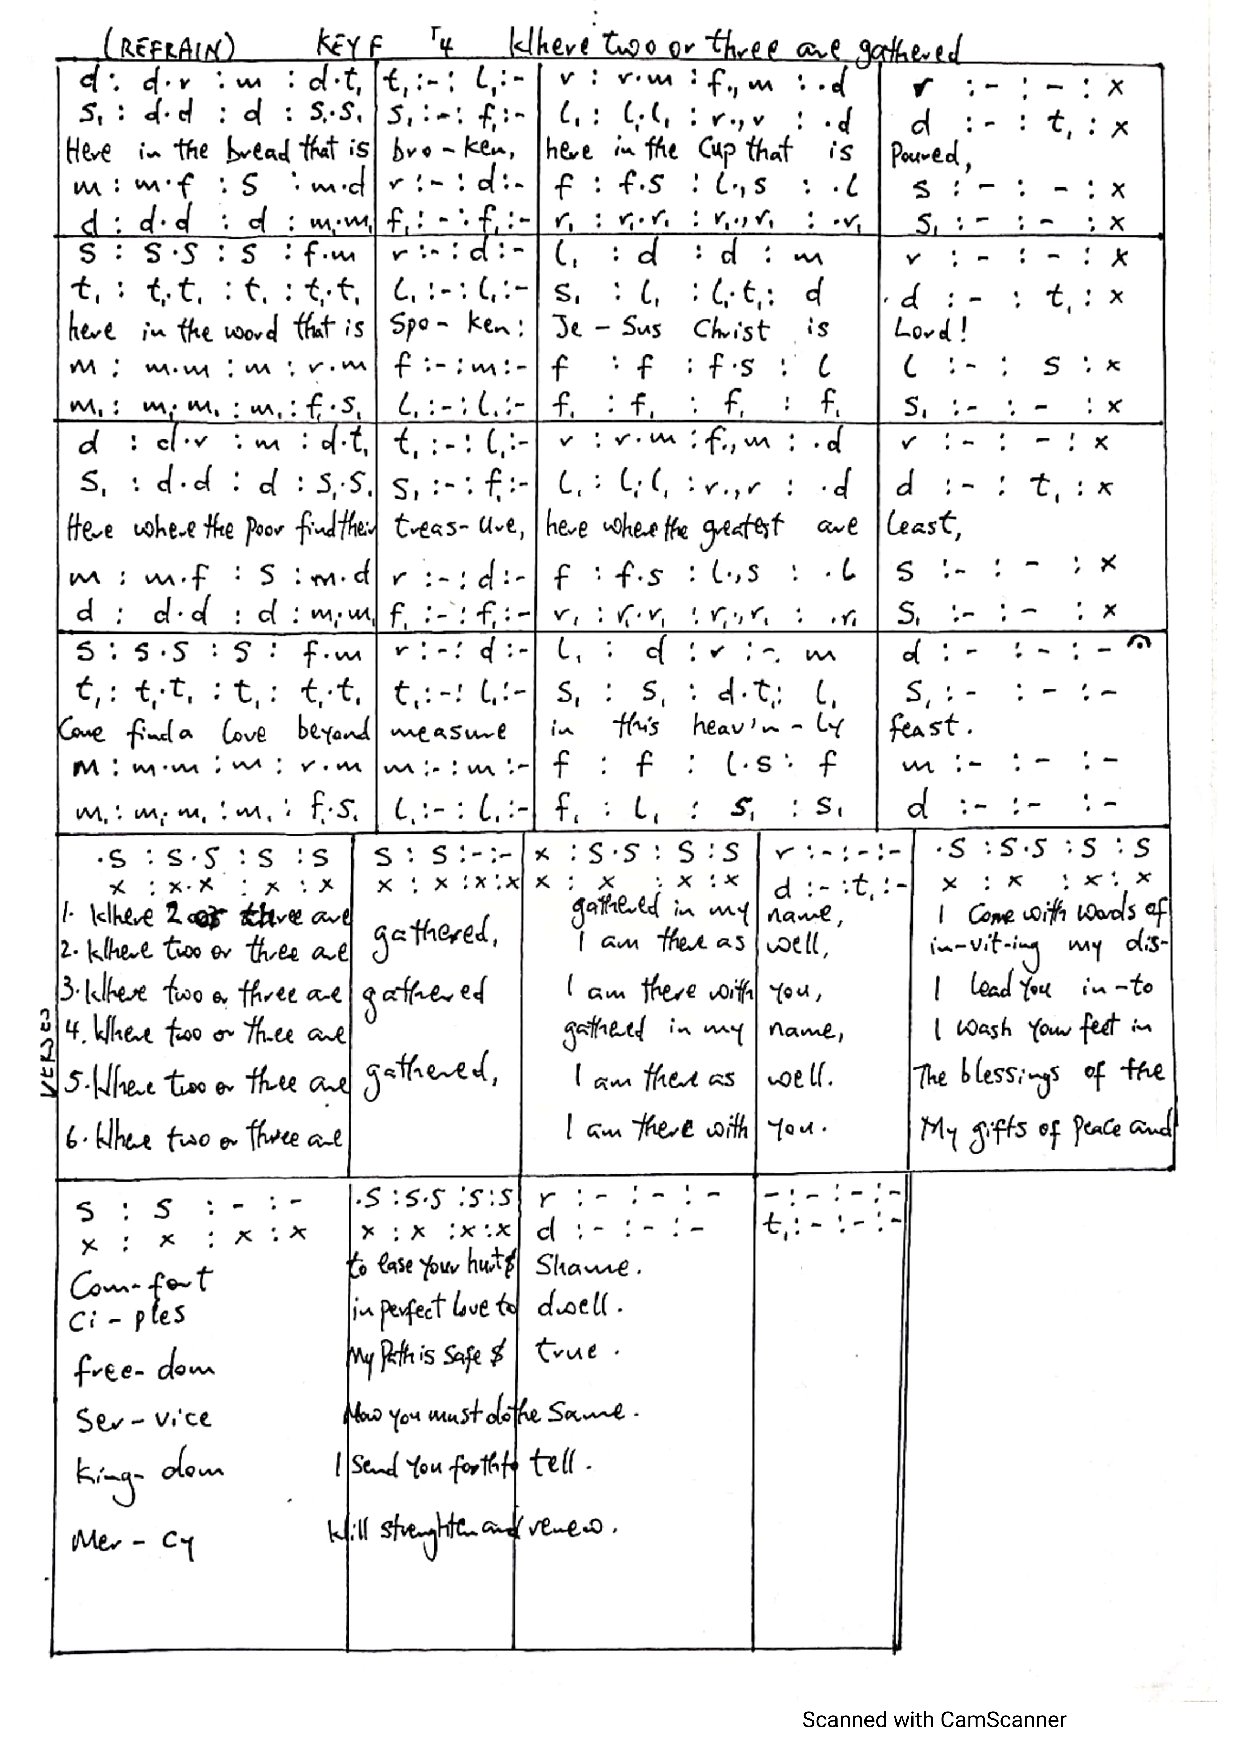 (REFRAIN) KEY F Γ4 Where two or three are gathered
d : d·r : m : d·t, | t, :- : l, :- | r : r·m : f., m : ·d | r :- : - : x
s, : d·d : d : s,·s, | s, :- : f, :- | l, : l,·l, : r., r : ·d | d :- : t, : x
Here in the bread that is | bro-ken, | here in the Cup that is | Poured,
m : m·f : s : m·d | r :- : d :- | f : f·s : l., s : ·l | s :- : - : x
d : d·d : d : m,·m, | f, :- : f, :- | r, : r,·r, : r,., r, : ·r, | s, :- : - : x
s : s·s : s : f·m | r :- : d :- | l, : d : d : m | r :- : - : x
t, : t,·t, : t, : t,·t, | l, :- : l, :- | s, : l, : l,·t, : d | d :- : t, : x
here in the word that is | Spo-ken: | Je-sus Christ is | Lord!
m : m·m : m : r·m | f :- : m :- | f : f : f·s : l | l :- : s : x
m, : m,·m, : m, : f,·s, | l, :- : l, :- | f, : f, : f, : f, | s, :- : - : x
d : d·r : m : d·t, | t, :- : l, :- | r : r·m : f., m : ·d | r :- : - : x
s, : d·d : d : s,·s, | s, :- : f, :- | l, : l,·l, : r., r : ·d | d :- : t, : x
Here where the poor find their | treas-ure, | here where the greatest are | least,
m : m·f : s : m·d | r :- : d :- | f : f·s : l., s : ·l | s :- : - : x
d : d·d : d : m,·m, | f, :- : f, :- | r, : r,·r, : r,., r, : ·r, | s, :- : - : x
s : s·s : s : f·m | r :- : d :- | l, : d : r :-. m | d :- : - : -
t, : t,·t, : t, : t,·t, | t, :- : l, :- | s, : s, : d·t, : l, | s, :- : - : -
Come find a love beyond | measure | in this heav'n-ly | feast.
m : m·m : m : r·m | m :- : m :- | f : f : l·s : f | m :- : - : -
m, : m,·m, : m, : f,·s, | l, :- : l, :- | f, : l, : s, : s, | d :- : - : -
·s : s·s : s : s | s : s :- :- | x : s·s : s : s | r :- :- :- | ·s : s·s : s : s
x : x·x : x : x | x : x : x : x | x : x : x : x | d :- : t, :- | x : x : x : x
VERSES
1. Where 2 or three are gathered, gathered in my name, I Come with words of
2. Where two or three are I am there as well, in-vit-ing my dis-
3. Where two or three are gathered I am there with you, I lead you in-to
4. Where two or three are gathered in my name, I wash your feet in
5. Where two or three are gathered, I am there as well. The blessings of the
6. Where two or three are I am there with you. My gifts of peace and
s : s : - : - | ·s : s·s : s : s | r :- : - : - | - : - : - : -
x : x : x : x | x : x : x : x | d :- : - : - | t, :- : - : -
Com-fort to ease your hurt & Shame.
Ci-ples in perfect love to dwell.
free-dom My Path is safe & true.
Ser-vice Now you must do the Same.
King-dom I send you forth to tell.
Mer-cy Will strenghten and renew.
Scanned with CamScanner